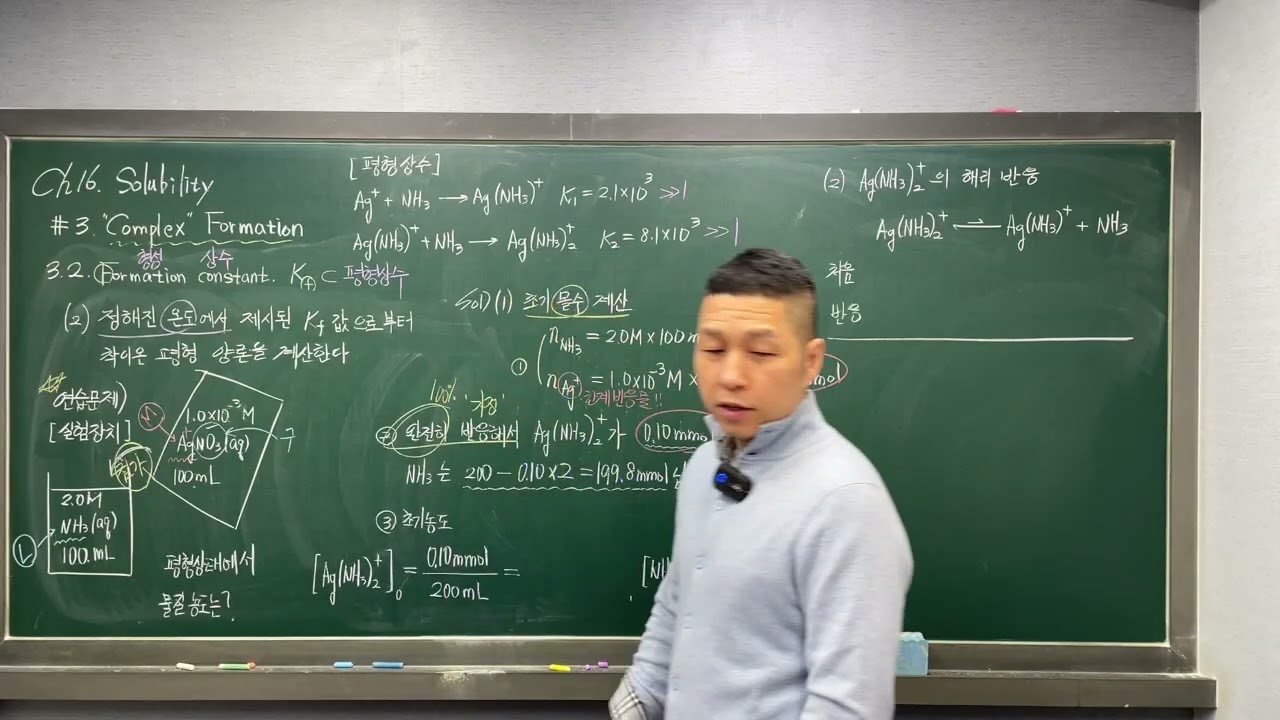 Ch16. Solubility
#3. "Complex" Formation
형성 상수
3.2. Formation constant. K ⊂ 평형상수
(2) 정해진 온도에서 제시된 Kf 값으로부터
착이온 평형 양론을 계산한다
연습문제)
[실험장치]
1.0×10⁻³ M
AgNO₃(aq)
100.mL
2.0M
NH₃(aq)
100.mL
평형상태에서
물질 농도는?
[평형상수]
Ag⁺ + NH₃ → Ag(NH₃)⁺ K₁ = 2.1×10³ >>1
Ag(NH₃)⁺ + NH₃ → Ag(NH₃)₂⁺ K₂ = 8.1×10³ >>1
Sol) (1) 초기 몰수 계산
① n NH₃ = 2.0M × 100 m
n Ag⁺ = 1.0×10⁻³ M × mol
한계반응물!!
100% '가정'
② 완전히 반응해서 Ag(NH₃)₂⁺가 0.10mmo
NH₃는 200 − 0.10×2 = 199.8mmol
③ 초기농도
[Ag(NH₃)₂⁺]₀ = 0.10mmol / 200mL =
[NH
(2) Ag(NH₃)₂⁺의 해리 반응
Ag(NH₃)₂⁺ ⇌ Ag(NH₃)⁺ + NH₃
처음
반응